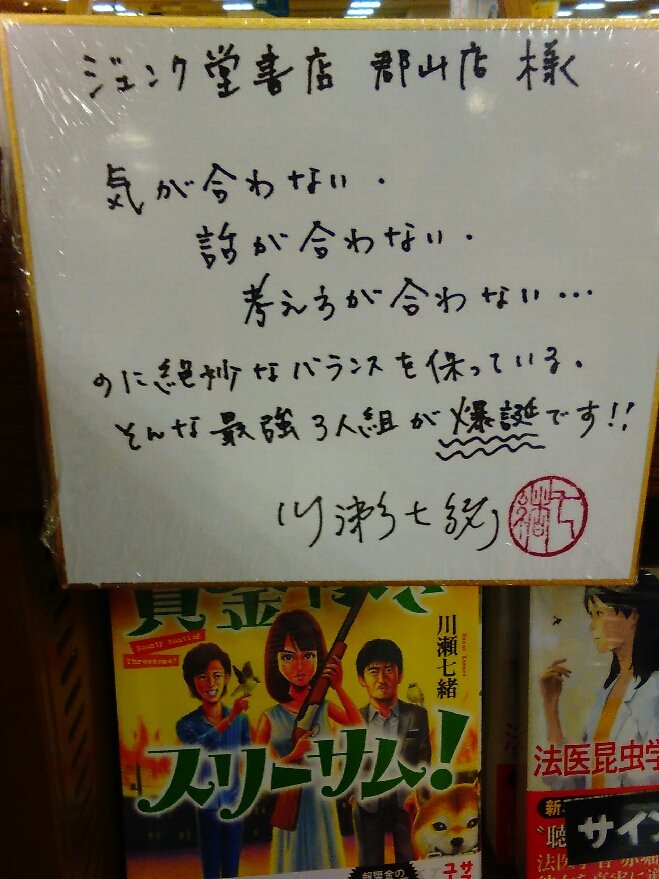 ジュンク堂書店 郡山店 様
気が合わない.
話が合わない.
考え方が合わない…
のに絶妙なバランスを保っている。
そんな最強3人組が爆誕です!!
川瀬七緒
賞金稼ぎ
Bounty hunting
Threesome!
スリーサム!
川瀬七緒
法医昆虫学
新
“聴
サイン
法医